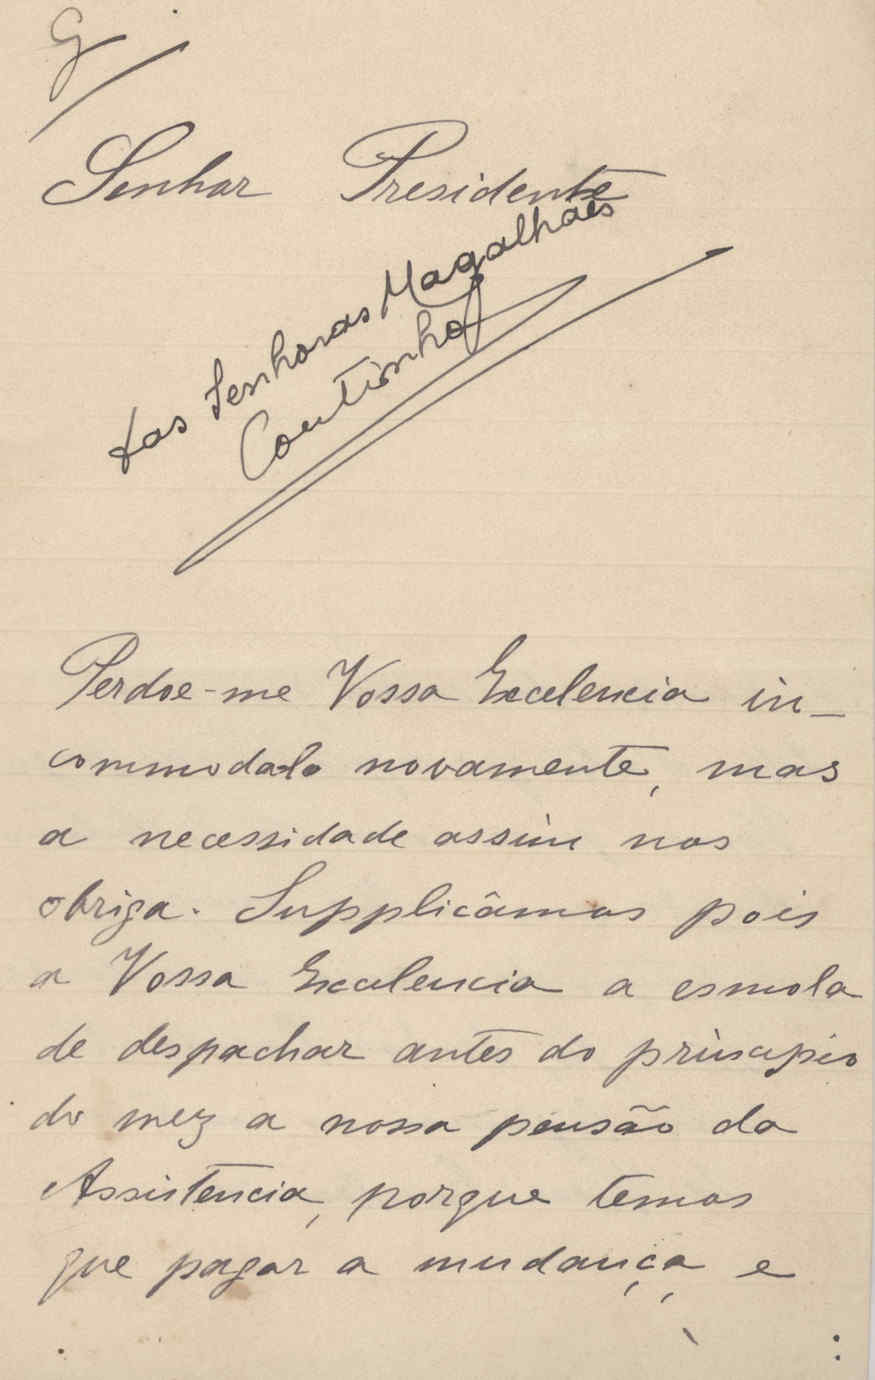 G
Senhor Presidente
das Senhoras Magalhães
Coutinho
Perdoe-me Vossa Excelencia in-
commodalo novamente, mas
a necessidade assim nos
obriga. Supplicâmos pois
a Vossa Excelencia a esmola
de despachar antes do principio
do mez a nossa pensão da
Assistencia, porque temos
que pagar a mudança, e